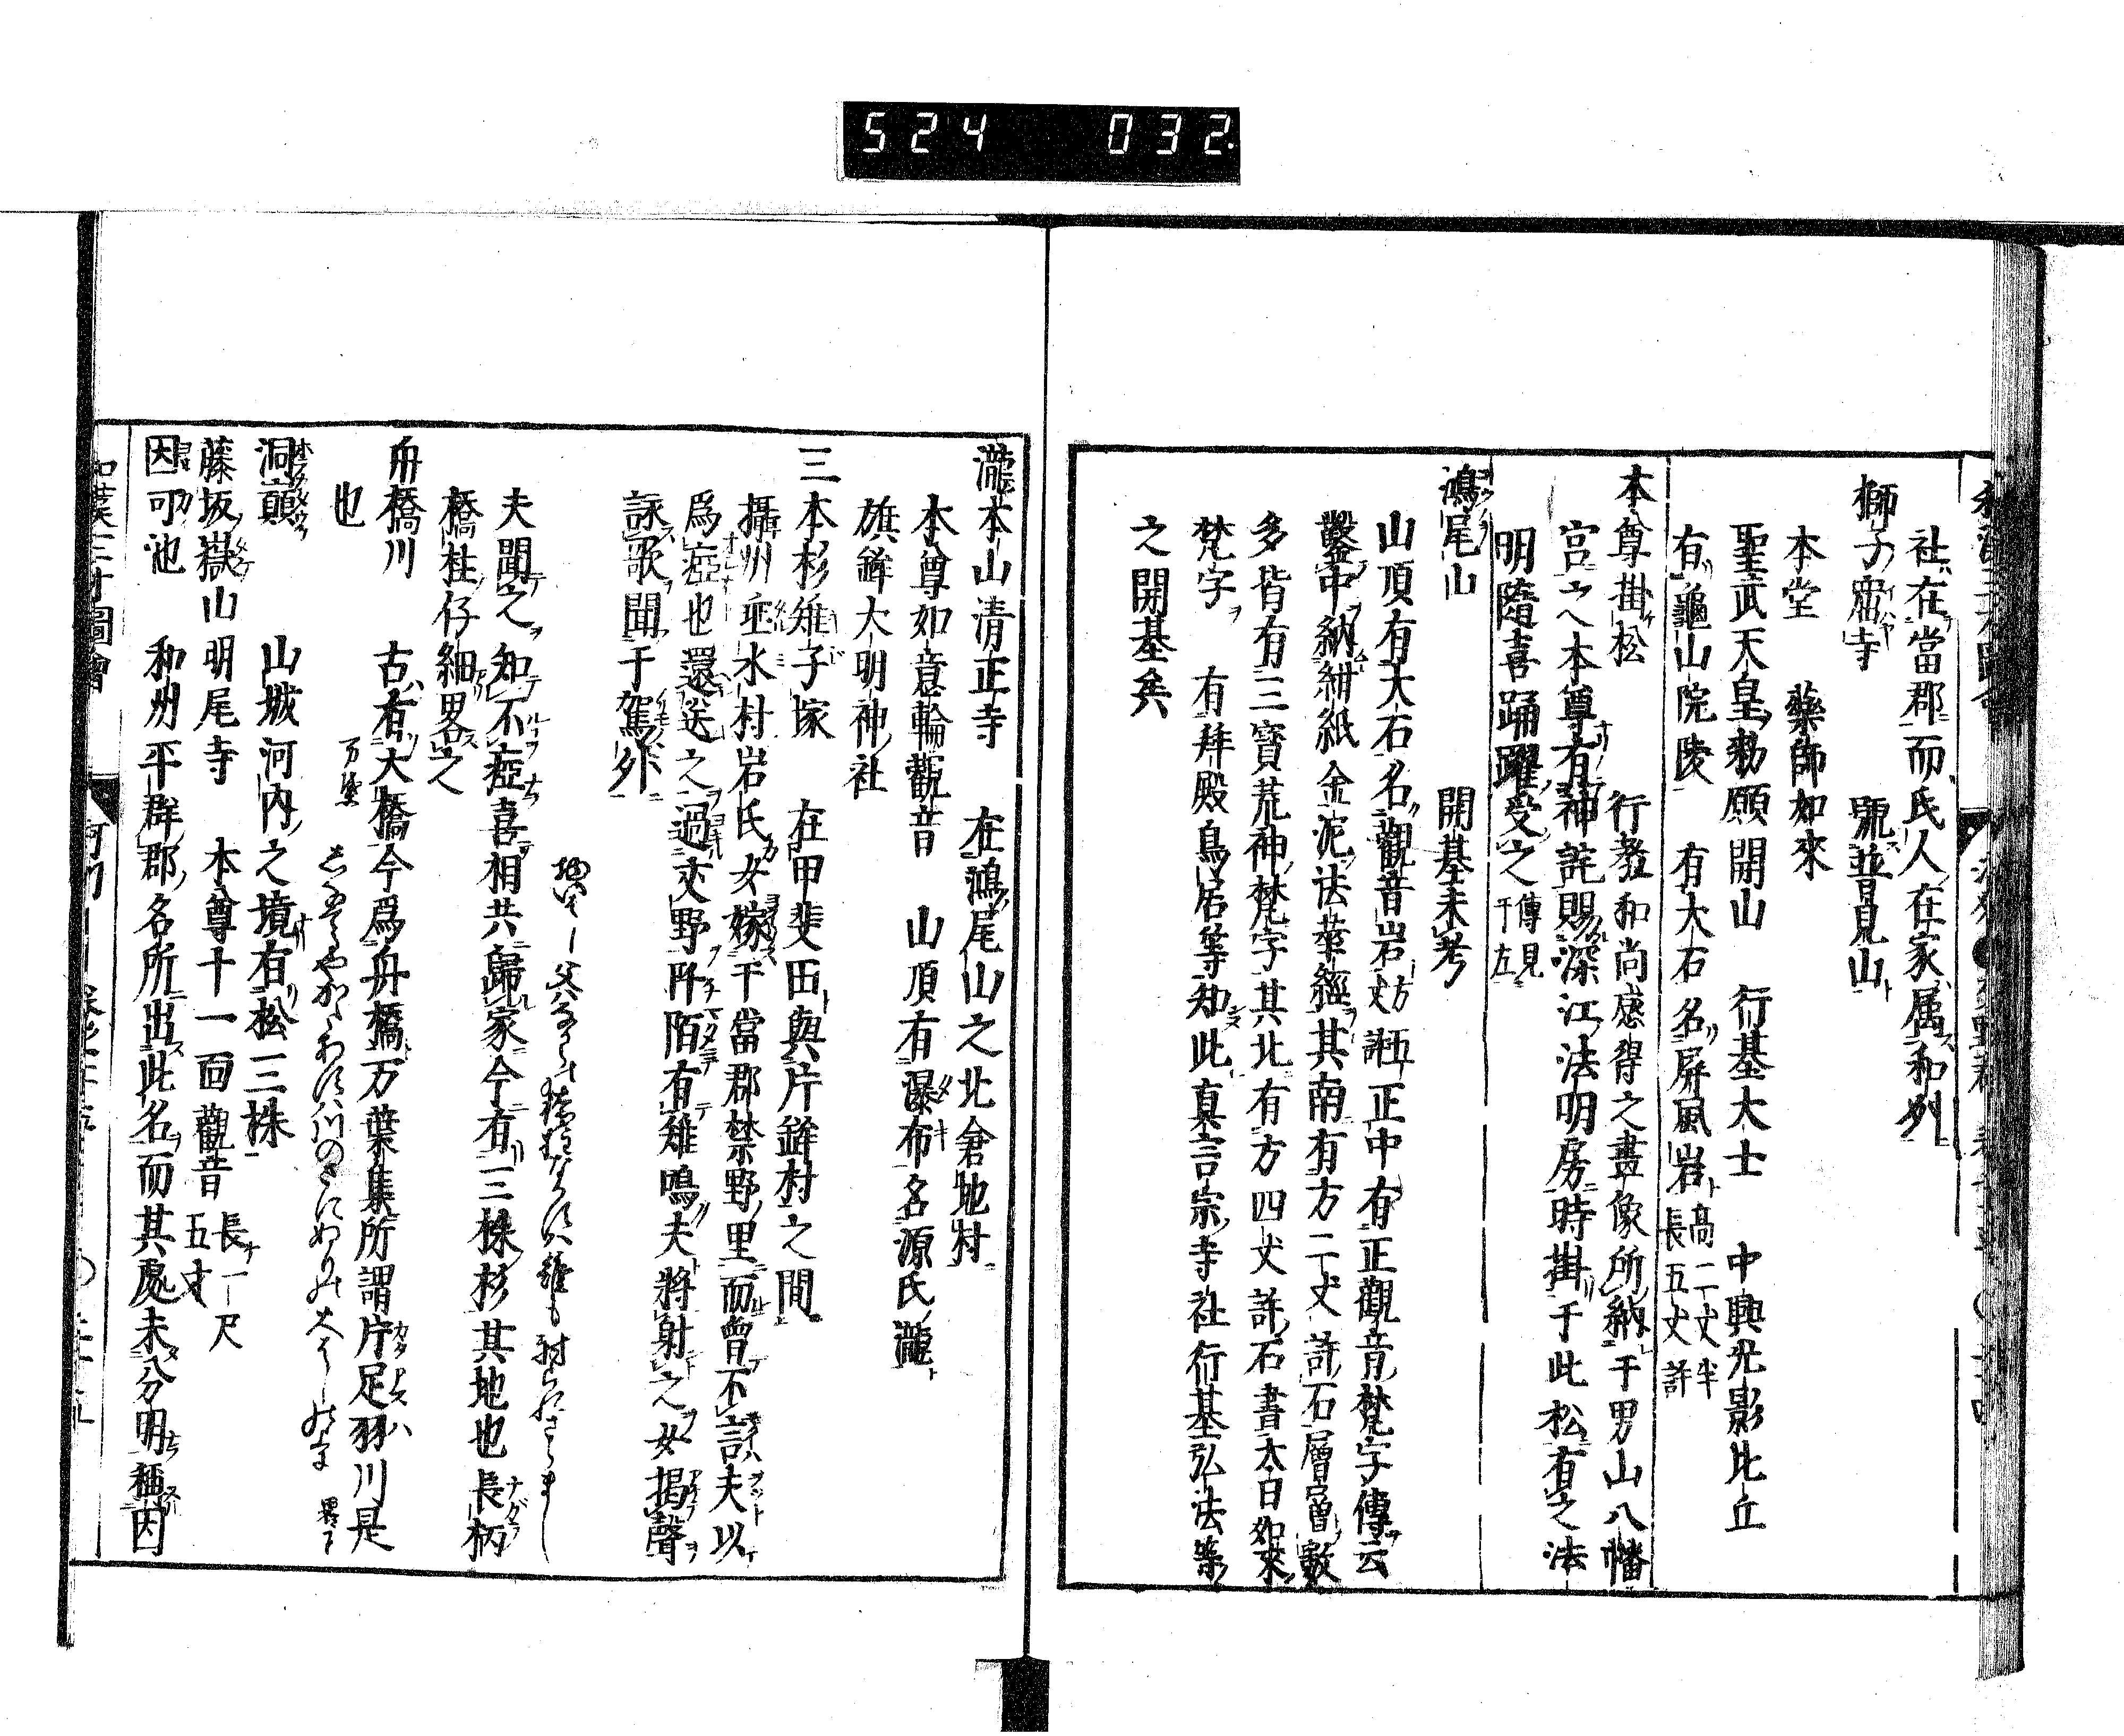 524 032
社在當郡而氏人在家属和列
獅子窟寺 號普見山
本堂 藥師如來
聖武天皇勅願開山 行基大士 中興光影比丘
有龜山院陵 有大石名屏風岩 高二丈半 長五丈許
本尊掛松 行教和尚感得之畫像所納于男山八幡
宮之本尊有神託賜深江法明房時掛于此松有之法
明隨喜踊躍受之 傳見于左
鴻尾山 開基未考
山頂有大石名觀音岩 方五丈許 正中有正觀音梵字傳云
鑿中納紺紙金泥法華經其南有方二丈許石層層數
多皆有三寶荒神梵字其北有方四丈許石書大日如來
梵字 有拜殿鳥居等知此真言宗寺社行基弘法等
之開基矣
瀧本山清正寺 在鴻尾山之北倉地村
本尊如意輪觀音 山頂有瀑布名源氏瀧
旗鉾大明神社
三本杉雉子塚 在甲斐田與片鉾村之間
攝州垂水村岩氏女嫁于當郡禁野里而曾不言夫以
爲瘂也還送之過交野阡陌有雉鳴夫將射之女揭聲
詠歌聞于駕外
夫聞之知不瘂喜相共歸家今有三株杉其地也長柄
橋柱仔細畧之
舟橋川 古有大橋今爲舟橋万葉集所謂片足羽川是
也
万葉
洞巔 山城河内之境有松三株
藤坂嶽山明尾寺 本尊十一面觀音 長一尺五寸
因可池 和州平群郡名所出此名而其處未分明稱因